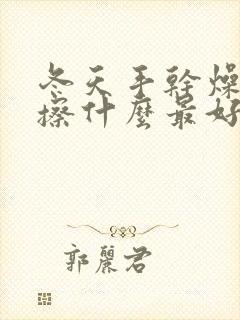 冬天手幹燥
擦什麼最好
郭麗君